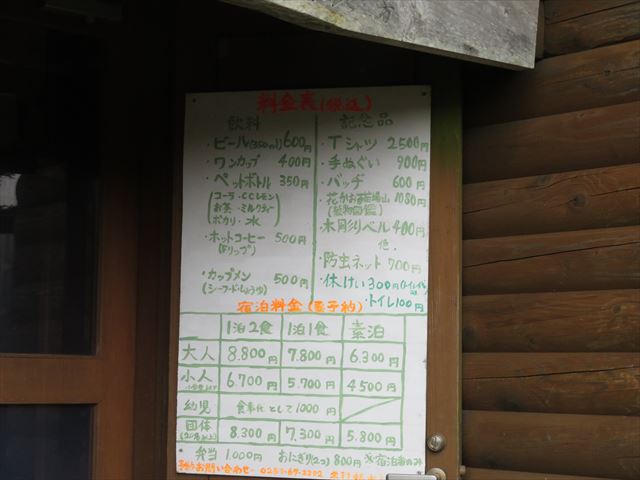 料金表(税込)
飲料
・ビール(350ml)600円
・ワンカップ 400円
・ペットボトル 350円
(コーラ・C.C.レモン
お茶・ミルクティー
ポカリ・水)
・ホットコーヒー 500円
(ドリップ)
・カップメン 500円
(シーフード・しょうゆ)
記念品
・Tシャツ 2500円
・手ぬぐい 900円
・バッヂ 600円
・花かお苗場山 1080円
(植物図鑑)
・木彫りベル 400円
他.
・防虫ネット 700円
・休けい 300円
・トイレ 100円
宿泊料金(要予約)
1泊2食 1泊1食 素泊
大人 8.800円 7.800円 6.300円
小人 6.700円 5.700円 4500円
幼児 食事代として1000円
団体 8.300円 7.300円 5.800円
弁当 1.000円 おにぎり(2つ) 800円 ※宿泊者のみ
お問い合わせ